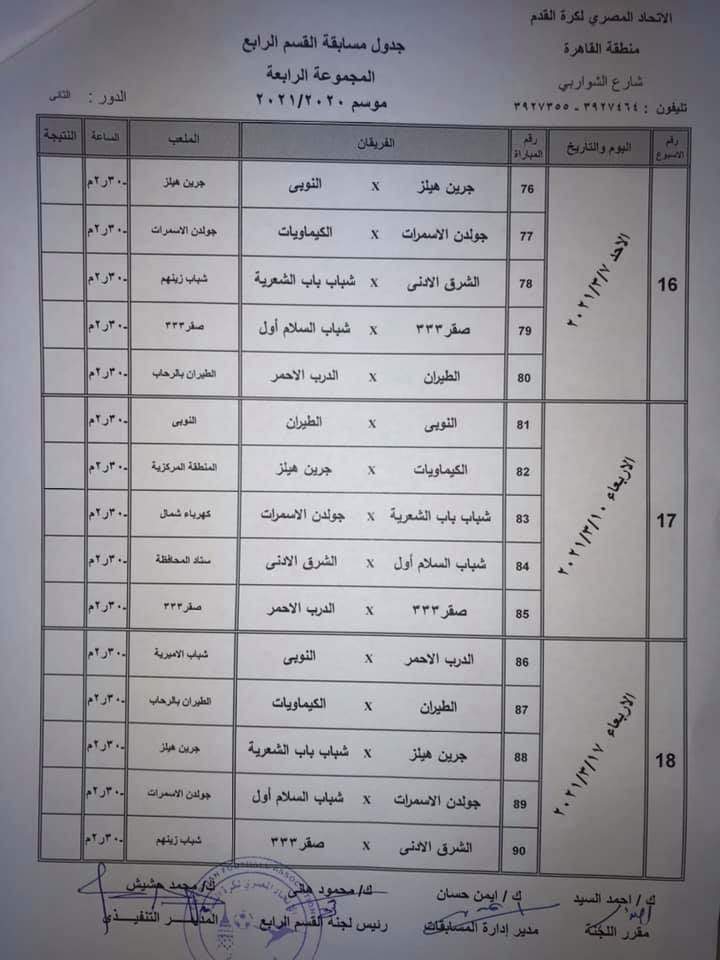 الاتحاد المصري لكرة القدم
منطقة القاهرة
شارع الشواربي
تليفون : ٣٩٢٧٤٦٤ - ٣٩٢٧٣٥٥
جدول مسابقة القسم الرابع
المجموعة الرابعة
موسم ٢٠٢١/٢٠٢٠
الدور : الثانى
رقم الاسبوع اليوم والتاريخ رقم المباراة الفريقان الملعب الساعة النتيجة
16 الاحد ٢٠٢١/٣/٧
76 جرين هيلز x النوبى جرين هيلز ٢٫٣٠م
77 جولدن الاسمرات x الكيماويات جولدن الاسمرات ٢٫٣٠م
78 الشرق الادنى x شباب باب الشعرية شباب زينهم ٢٫٣٠م
79 صقر٣٣٣ x شباب السلام أول صقر٣٣٣ ٢٫٣٠م
80 الطيران x الدرب الاحمر الطيران بالرحاب ٢٫٣٠م
17 الاربعاء ٢٠٢١/٣/١٠
81 النوبى x الطيران النوبى ٢٫٣٠م
82 الكيماويات x جرين هيلز المنطقة المركزية ٢٫٣٠م
83 شباب باب الشعرية x جولدن الاسمرات كهرباء شمال ٢٫٣٠م
84 شباب السلام أول x الشرق الادنى ستاد المحافظة ٢٫٣٠م
85 صقر٣٣٣ x الدرب الاحمر صقر٣٣٣ ٢٫٣٠م
18 الاربعاء ٢٠٢١/٣/١٧
86 الدرب الاحمر x النوبى شباب الاميرية ٢٫٣٠م
87 الطيران x الكيماويات الطيران بالرحاب ٢٫٣٠م
88 جرين هيلز x شباب باب الشعرية جرين هيلز ٢٫٣٠م
89 جولدن الاسمرات x شباب السلام أول جولدن الاسمرات ٢٫٣٠م
90 الشرق الادنى x صقر٣٣٣ شباب زينهم ٢٫٣٠م
ك / احمد السيد ك / ايمن حسان ك/ محمود هانى ك/ محمد هشيش
مقرر اللجنة مدير إدارة المسابقات رئيس لجنة القسم الرابع المدير التنفيذي